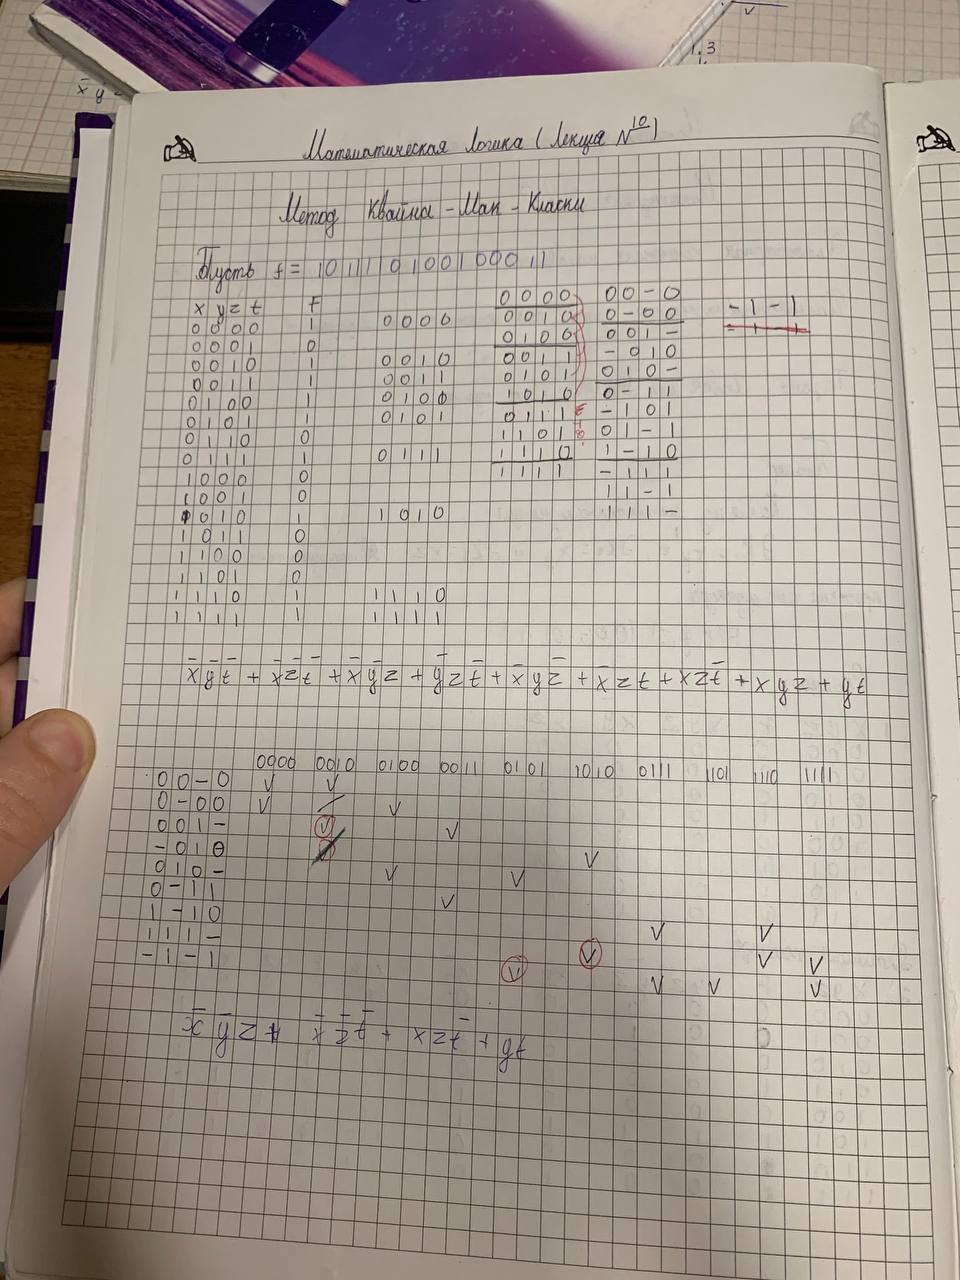 1,3
x̄ ȳ
Математическая логика (лекция №10)
Метод Квайна - Мак - Класки
Пусть f = 1011110100100011
x y z t f
0 0 0 0 1
0 0 0 1 0
0 0 1 0 1
0 0 1 1 1
0 1 0 0 1
0 1 0 1 1
0 1 1 0 0
0 1 1 1 1
1 0 0 0 0
1 0 0 1 0
1 0 1 0 1
1 0 1 1 0
1 1 0 0 0
1 1 0 1 0
1 1 1 0 1
1 1 1 1 1
0 0 0 0
0 0 1 0
0 0 1 1
0 1 0 0
0 1 0 1
0 1 1 1
1 0 1 0
1 1 1 0
1 1 1 1
0 0 0 0
0 0 1 0
0 1 0 0
0 0 1 1
0 1 0 1
1 0 1 0
0 1 1 1
1 1 0 1
1 1 1 0
1 1 1 1
0 0 - 0
0 - 0 0
0 0 1 -
- 0 1 0
0 1 0 -
0 - 1 1
- 1 0 1
0 1 - 1
1 - 1 0
- 1 1 1
1 1 - 1
1 1 1 -
- 1 - 1
- 1 - 1
x̄ȳt̄ + x̄z̄t̄ + x̄ȳz + ȳzt̄ + x̄yz̄ + x̄zt + xzt̄ + xyz + yt
0000 0010 0100 0011 0101 1010 0111 1101 1110 1111
0 0 - 0 V V
0 - 0 0 V V
0 0 1 - V V
- 0 1 0 V
0 1 0 - V V
0 - 1 1 V
1 - 1 0 V V
1 1 1 - V V V
- 1 - 1 V V V V
x̄ȳz + x̄z̄t̄ + xzt̄ + yt